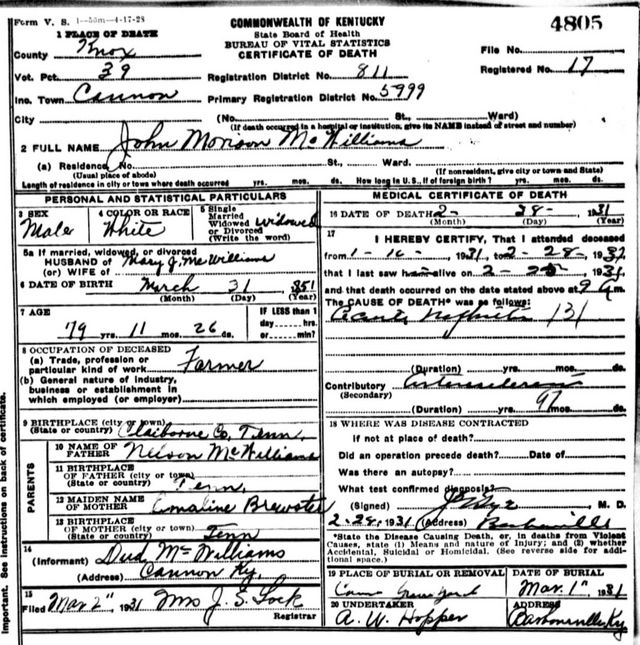 Form V. S. 1—50m—4-17-28
COMMONWEALTH OF KENTUCKY
4805
State Board of Health
BUREAU OF VITAL STATISTICS
CERTIFICATE OF DEATH
1 PLACE OF DEATH
County Knox
File No.
Vot. Pct. 39
Registration District No. 811
Registered No. 17
Inc. Town Cannon
Primary Registration District No. 5999
City (No. St., Ward)
(If death occurred in a hospital or institution, give its NAME instead of street and number)
2 FULL NAME John Monroon McWilliams
(a) Residence, No. St., Ward.
(Usual place of abode) (If nonresident, give city or town and State)
Length of residence in city or town where death occurred yrs. mos. ds. How long in U.S., if of foreign birth? yrs. mos. ds.
PERSONAL AND STATISTICAL PARTICULARS
3 SEX Male
4 COLOR OR RACE White
5 Single
Married
Widowed Widowed
or Divorced
(Write the word)
5a If married, widowed, or divorced
HUSBAND OF Mary J. McWilliams
(or) WIFE OF
6 DATE OF BIRTH March 31 1851
(Month) (Day) (Year)
7 AGE
79 yrs. 11 mos. 26 ds.
IF LESS than 1
day hrs.
or min?
8 OCCUPATION OF DECEASED
(a) Trade, profession or
particular kind of work Farmer
(b) General nature of industry,
business or establishment in
which employed (or employer)
9 BIRTHPLACE (city or town)
(State or country) Claiborne Co, Tenn.
PARENTS
10 NAME OF
FATHER Nelson McWilliams
11 BIRTHPLACE
OF FATHER (city or town)
(State or country) Tenn.
12 MAIDEN NAME
OF MOTHER Emaline Brewster
13 BIRTHPLACE
OF MOTHER (city or town)
(State or country) Tenn
14
(Informant) Dud McWilliams
(Address) Cannon Ky.
15
Filed Mar 2" 1931 Mrs J. S. Lock
Registrar
MEDICAL CERTIFICATE OF DEATH
16 DATE OF DEATH 2- 28- 1931
(Month) (Day) (Year)
17 I HEREBY CERTIFY, That I attended deceased
from 1-10-, 1931, to 2-28-, 1931
that I last saw him alive on 2-, 1931,
and that death occurred on the date stated above at 9 am.
The CAUSE OF DEATH* was as follows:
Acute Nephritis 131
(Duration) yrs. mos. ds.
Contributory arteriosclerosis
(Secondary)
(Duration) yrs. 97 mos. ds.
18 WHERE WAS DISEASE CONTRACTED
If not at place of death?
Did an operation precede death? Date of
Was there an autopsy?
What test confirmed diagnosis?
(Signed) M. D.
2-28, 1931 (Address) Barbourville
*State the Disease Causing Death, or, in deaths from Violent
Causes, state (1) Means and nature of Injury; and (2) whether
Accidental, Suicidal or Homicidal. (See reverse side for addi-
tional space.)
19 PLACE OF BURIAL OR REMOVAL
Grave Yard
DATE OF BURIAL
Mar. 1" 1931
20 UNDERTAKER
A. W. Hopper
ADDRESS
Barbourville Ky
Important. See instructions on back of certificate.